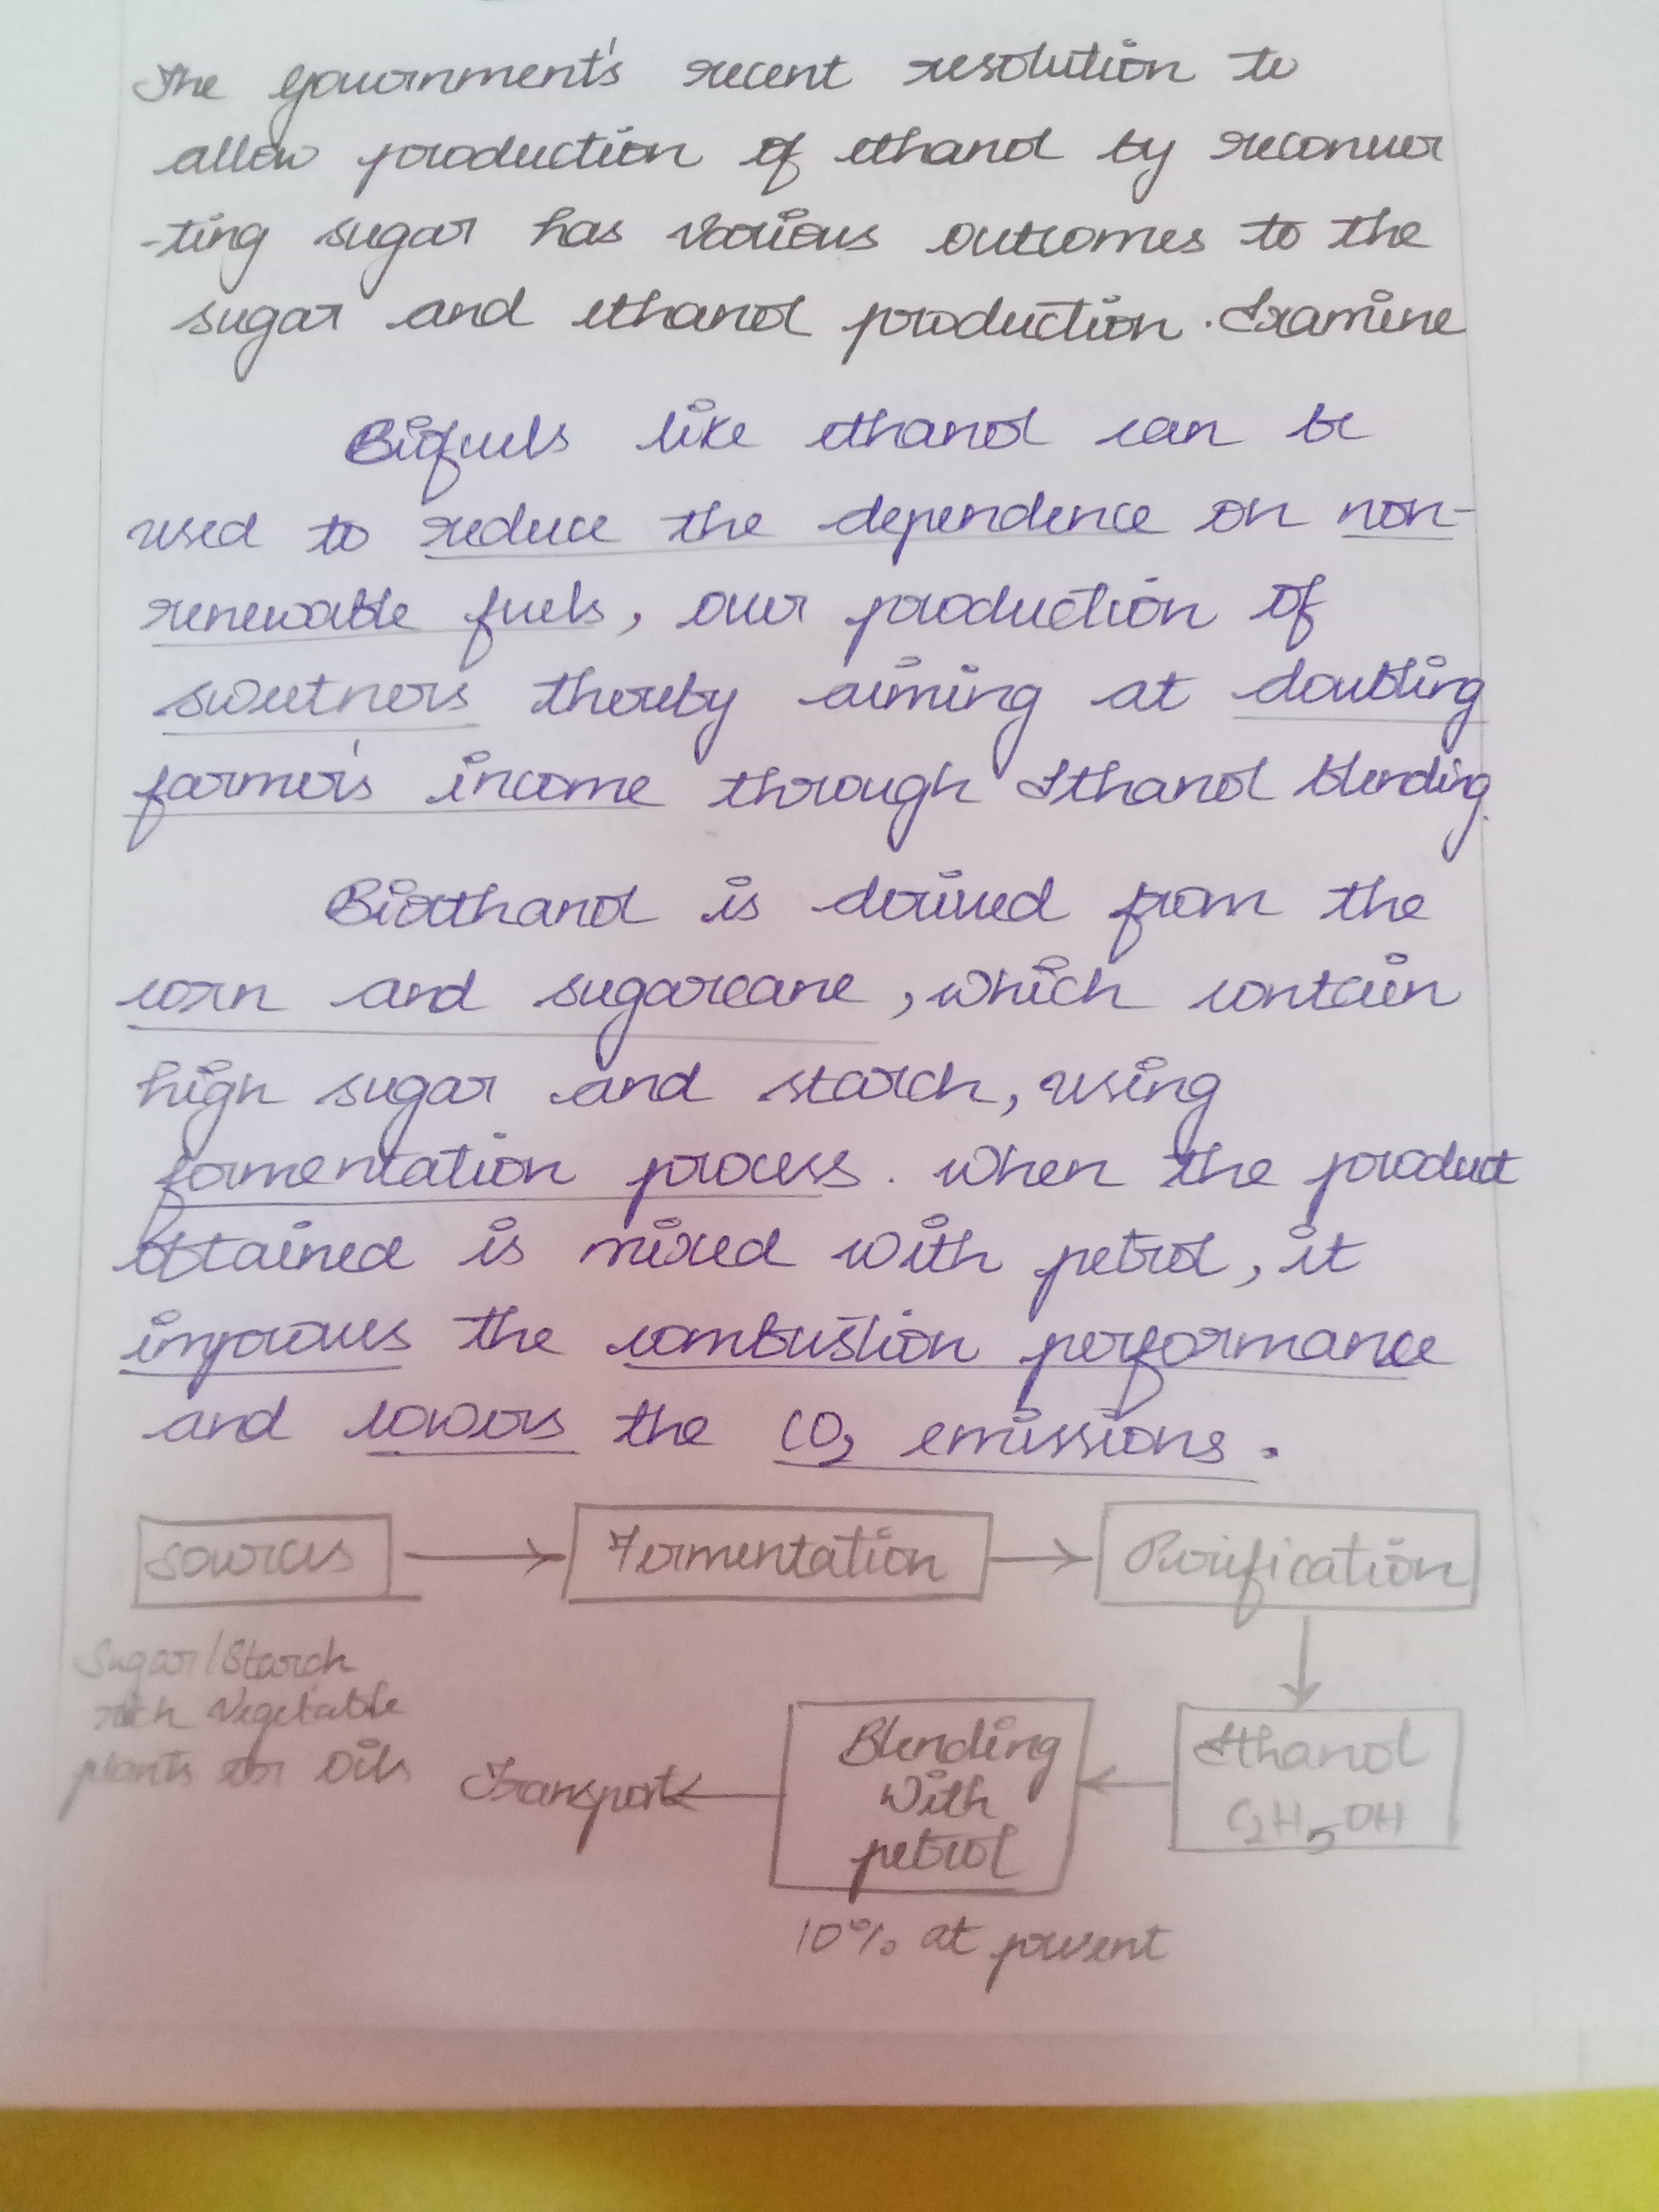 The Government's recent resolution to
allow production of ethanol by reconver
-ting sugar has various outcomes to the
sugar and ethanol production. Examine
Biofuels like ethanol can be
used to reduce the dependence on non-
renewable fuels, over production of
sweetners thereby aiming at doubling
farmer's income through Ethanol blending.
Bioethanol is derived from the
corn and sugarcane, which contain
high sugar and starch, using
fermentation process. When the product
obtained is mixed with petrol, it
improves the combustion performance
and lowers the CO2 emissions.
Sources → Fermentation → Purification
Sugar/Starch
rich Vegetable
plants or Oils
Ethanol
C2H5OH
Blending
With
petrol
Transport
10% at present